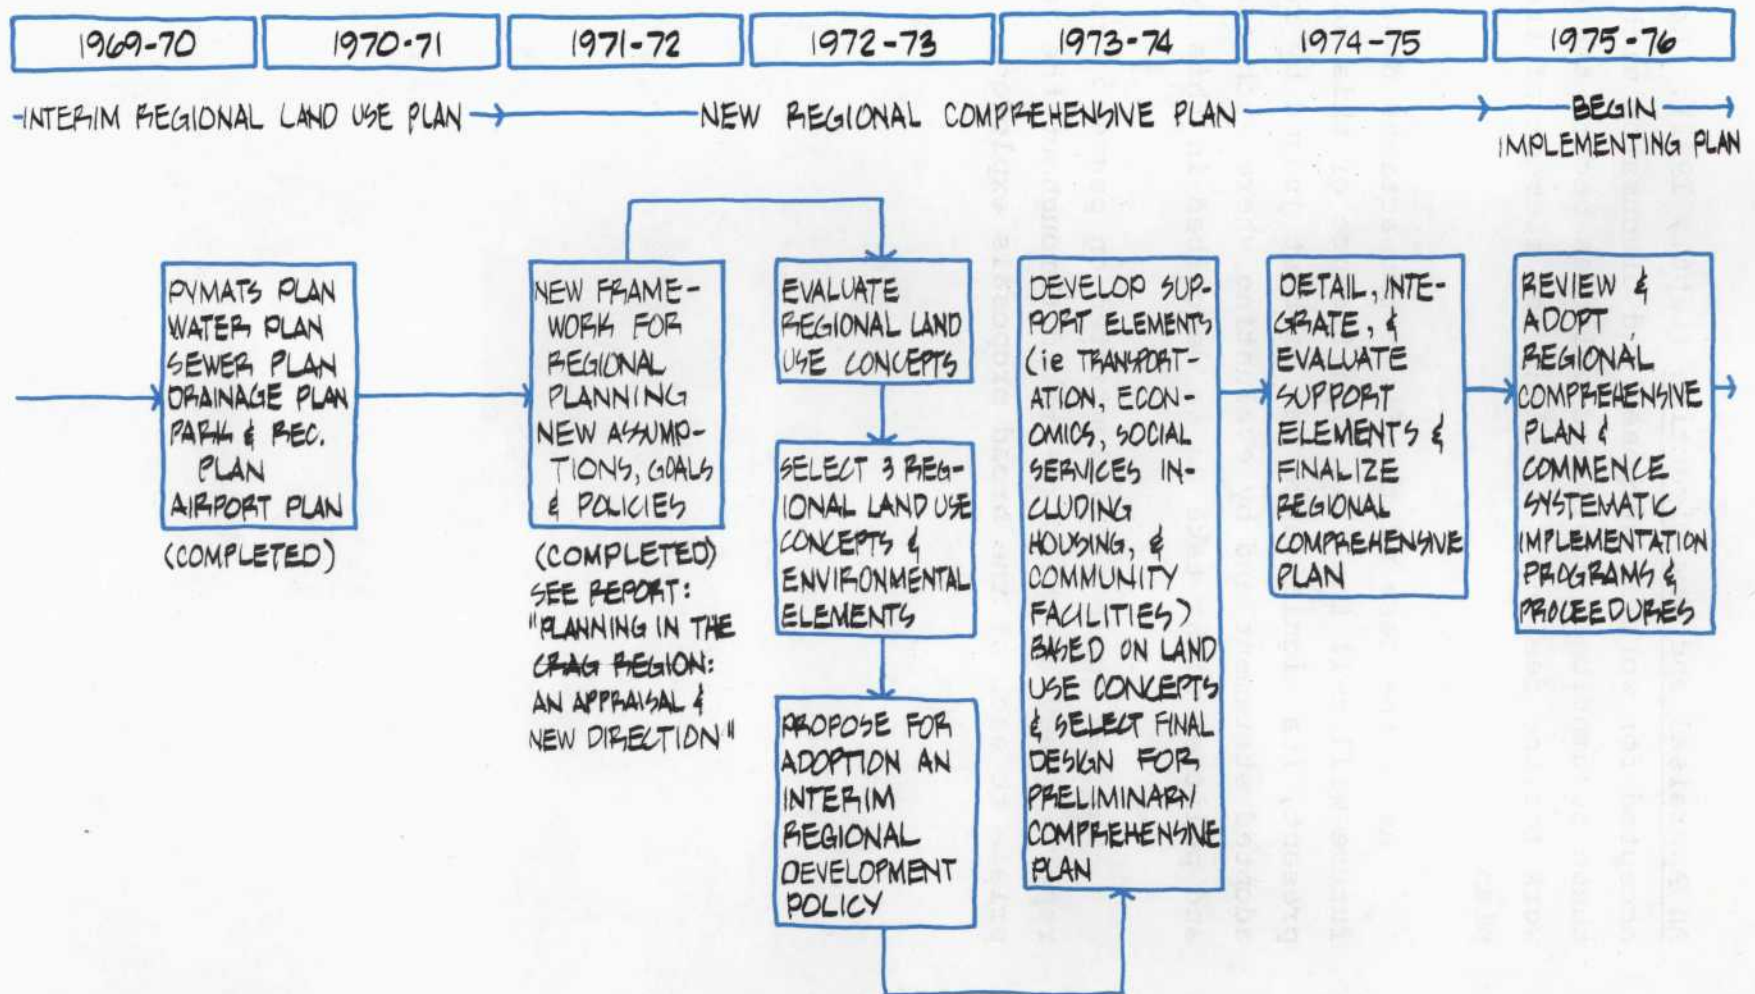 1969-70
1970-71
1971-72
1972-73
1973-74
1974-75
1975-76
INTERIM REGIONAL LAND USE PLAN
NEW REGIONAL COMPREHENSIVE PLAN
BEGIN
IMPLEMENTING PLAN
PVMATS PLAN
WATER PLAN
SEWER PLAN
DRAINAGE PLAN
PARK & REC.
PLAN
AIRPORT PLAN
(COMPLETED)
NEW FRAME-
WORK FOR
REGIONAL
PLANNING
NEW ASSUMP-
TIONS, GOALS
& POLICIES
(COMPLETED)
SEE REPORT:
"PLANNING IN THE
CRAG REGION:
AN APPRAISAL &
NEW DIRECTION"
EVALUATE
REGIONAL LAND
USE CONCEPTS
SELECT 3 REG-
IONAL LAND USE
CONCEPTS &
ENVIRONMENTAL
ELEMENTS
PROPOSE FOR
ADOPTION AN
INTERIM
REGIONAL
DEVELOPMENT
POLICY
DEVELOP SUP-
PORT ELEMENTS
(ie TRANSPORT-
ATION, ECON-
OMICS, SOCIAL
SERVICES IN-
CLUDING
HOUSING, &
COMMUNITY
FACILITIES)
BASED ON LAND
USE CONCEPTS
& SELECT FINAL
DESIGN FOR
PRELIMINARY
COMPREHENSIVE
PLAN
DETAIL, INTE-
GRATE, &
EVALUATE
SUPPORT
ELEMENTS &
FINALIZE
REGIONAL
COMPREHENSIVE
PLAN
REVIEW &
ADOPT
REGIONAL
COMPREHENSIVE
PLAN &
COMMENCE
SYSTEMATIC
IMPLEMENTATION
PROGRAMS &
PROCEEDURES